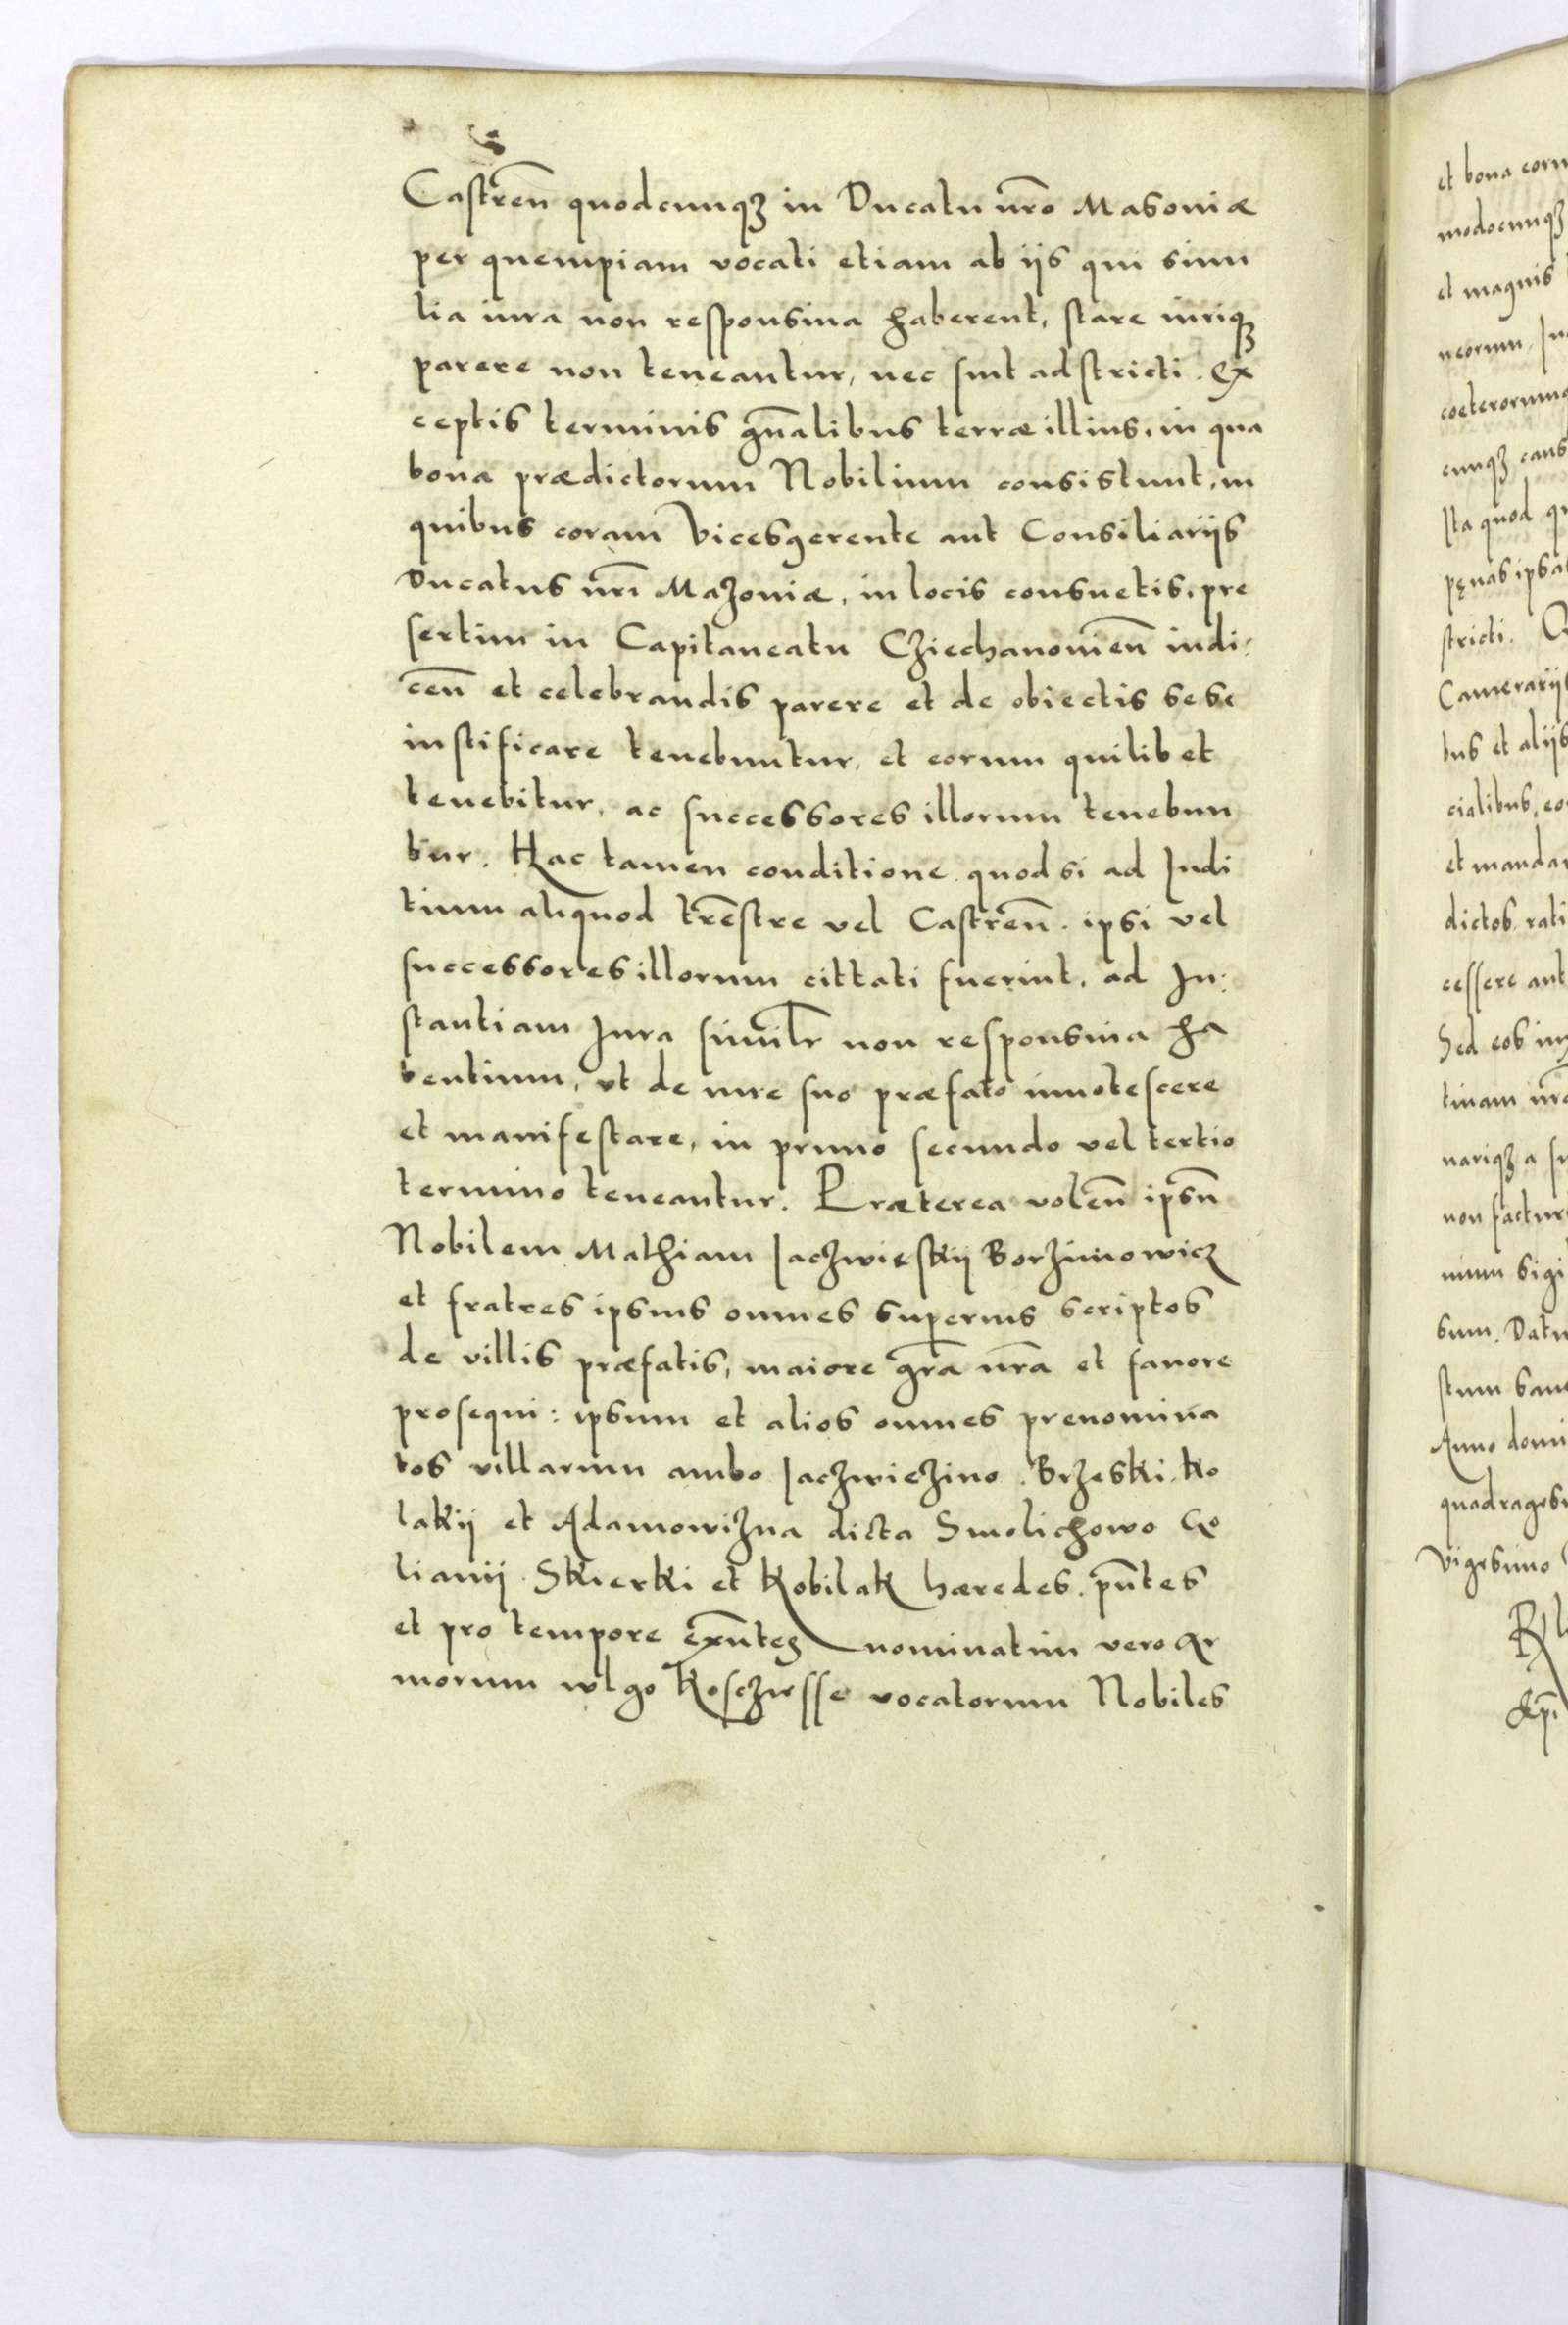 Castren̄ quodcunqꝫ in Ducatu nr̄o Masoniæ
per quempiam vocati etiam ab iis qui simi
lia iura non responsiua haberent, stare iuriqꝫ
parere non teneantur, nec sint adstricti. Ex
ceptis terminis gn̄alibus terræ illius, in qua
bona prædictorum Nobilium consistunt, in
quibus coram Vicesgerente aut Consiliariis
Ducatus nrī Mazoniæ, in locis consuetis, pre
sertim in Capitaneatu Cziechanouien̄ indi:
cen̄ et celebrandis parere et de obiectis sese
iustificare tenebuntur, et eorum quilibet
tenebitur, ac successores illorum tenebun
tur. Hac tamen conditione quod si ad Iudi
tium aliquod tr̄estre vel Castren̄. ipsi vel
successores illorum cittati fuerint, ad In:
stantiam Iura similr̄ non responsiua ha
bentium, ut de iure suo præfato innotescere
et manifestare, in primo secundo vel tertio
termino teneantur. Præterea volen̄ ipsūn
Nobilem Mathiam Jaczwieskij Borzimowicz
et fratres ipsius omnes superius scriptos
de villis præfatis, maiore gr̄a nr̄a et fauore
prosequi: ipsum et alios omnes prenomina
tos villarum ambo Jaczwiezino. Brzeski. Ko
lakij et Adamowizna dicta Smolichowo Go
lianij. Skierki et Kobilak hæredes. pn̄tes
et pro tempore exn̄tes nominatim vero Ar
morum wlgo Kosczirsse vocatorum Nobiles
et bona
modocunqꝫ
et magnis
coeterorum
cunqꝫ caus
Ita quod
stricti.
Camerarii
bus et aliis
cialibus,
et manda
dictos rati
cessere aut
Sed eos
tinam
nariqꝫ a
non factur
sum. Datu
stum
Anno domi
quadrages
Vigesimo